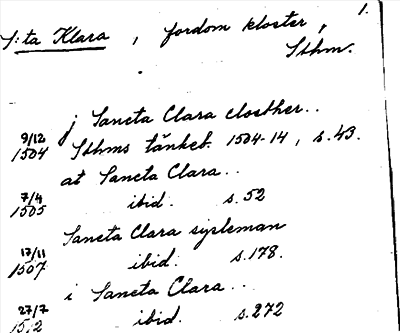 1.
S:ta Klara, fordom kloster,
Sthm.
j Sancta Clara closther..
9/12
1504 Sthms tänkeb. 1504-14, s.43.
at Sancta Clara..
7/4
1505 ibid. s.52
Sancta Clara sysleman
17/11
1507 ibid. s.178.
i Sancta Clara..
27/7
ibid. s.272